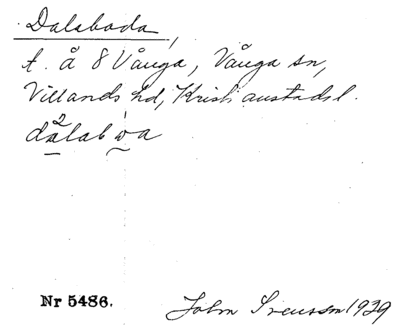 Dalaboda,
t. å 8 Vånga, Vånga sn,
Villands hd, Kristianstads l.
da²labωa
Nr 5486.
John Svensson 1939